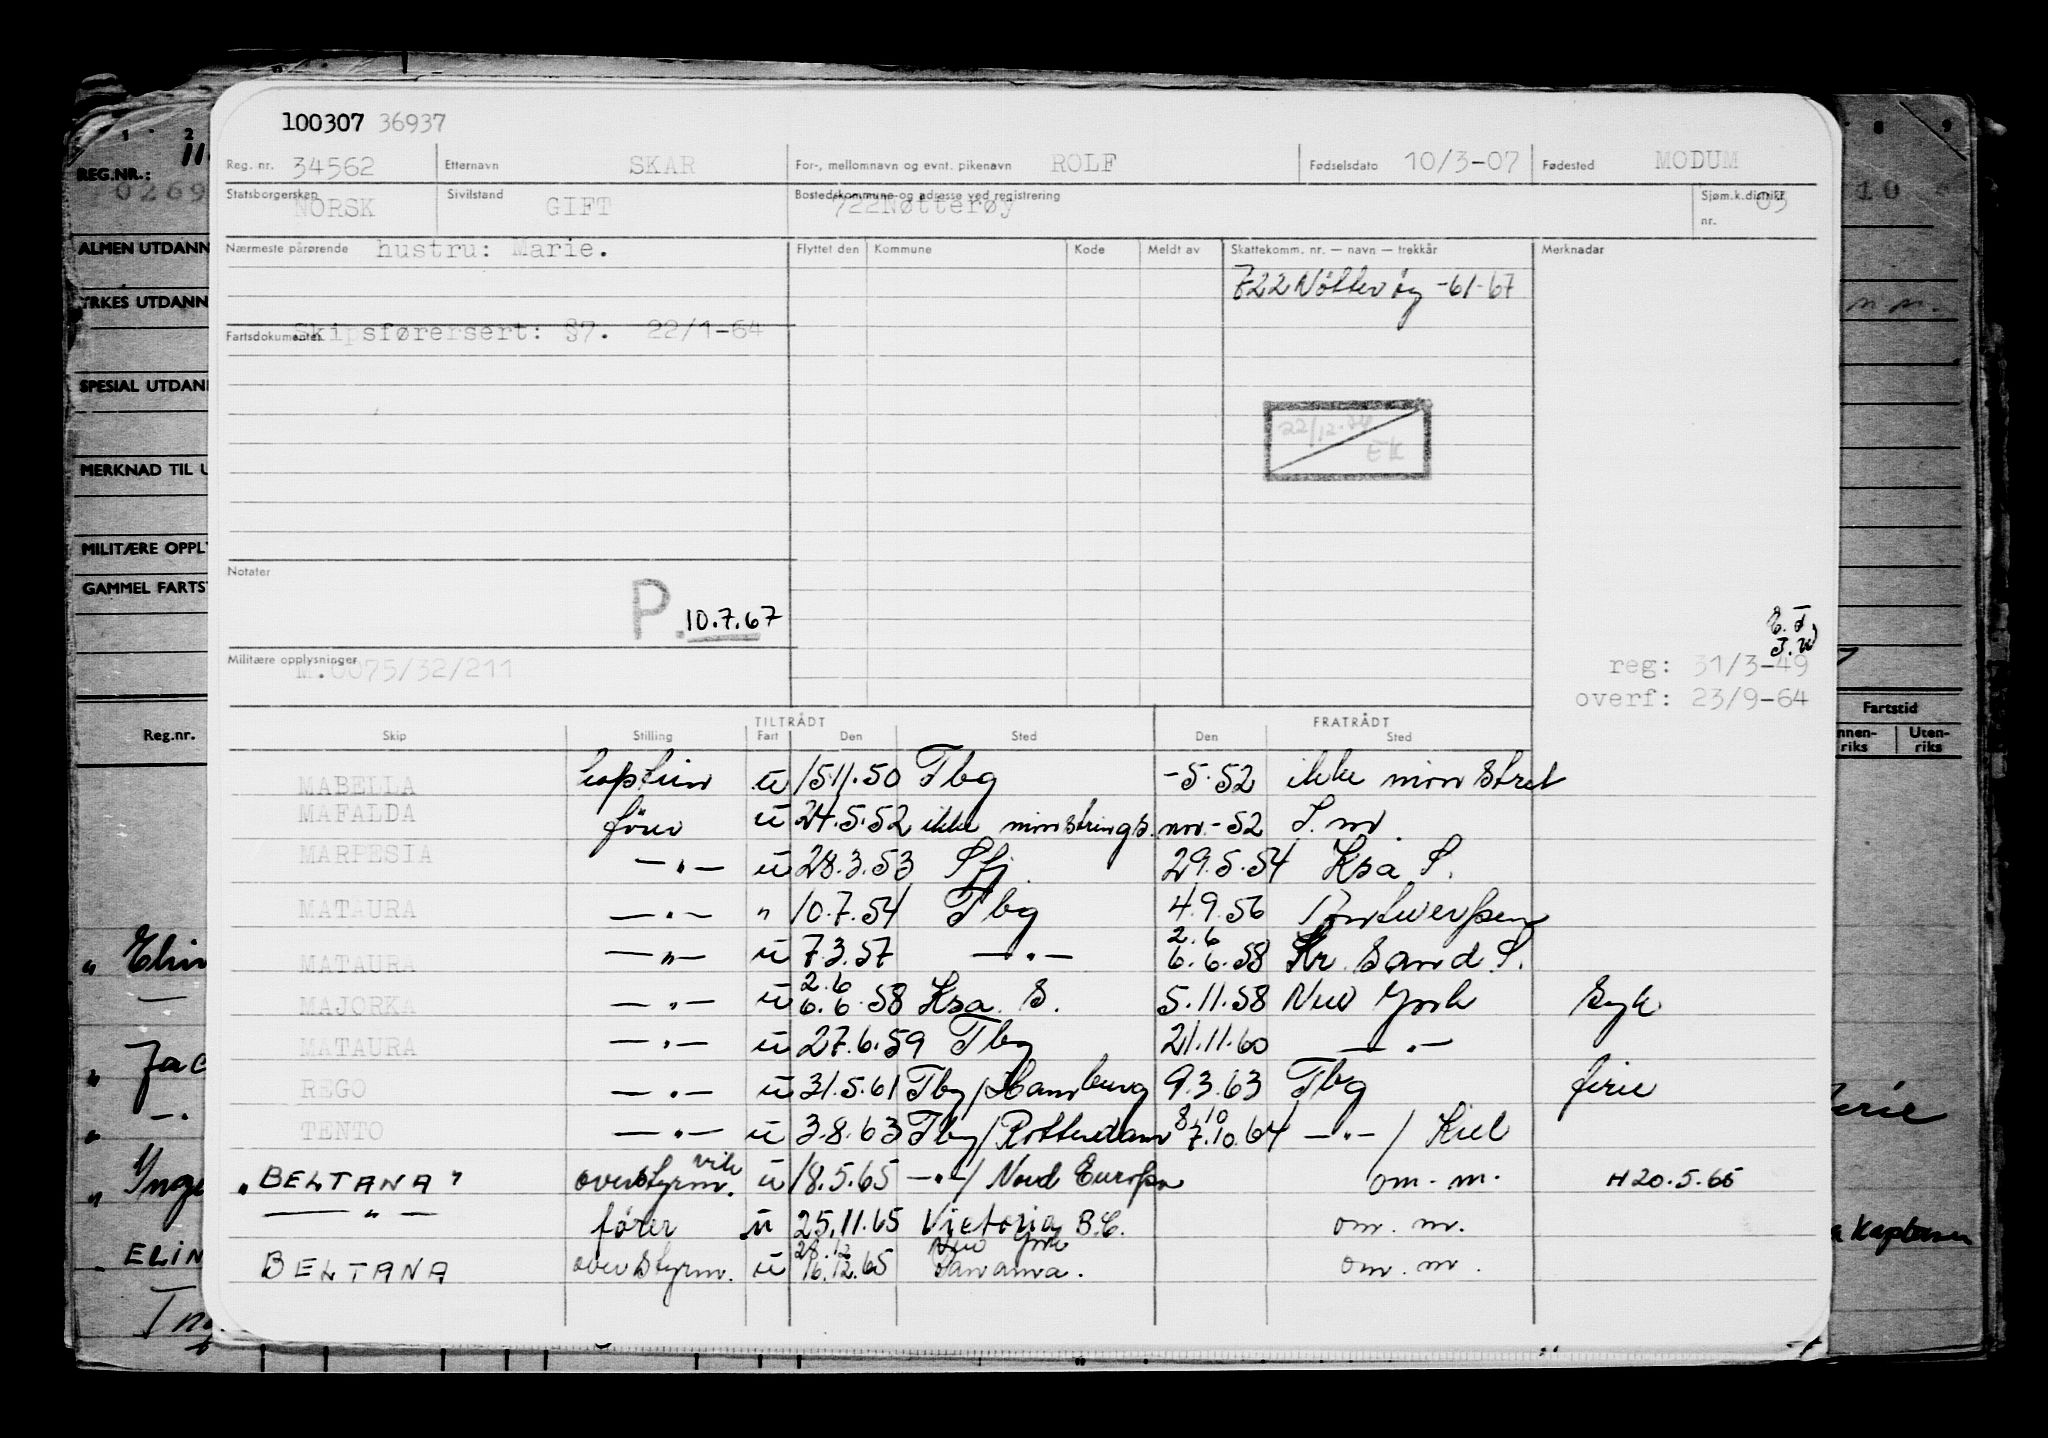 100307 36937
Reg. nr. 34562 Etternavn SKAR For-, mellomnavn og evnt. pikenavn ROLF Fødselsdato 10/3-07 Fødested MODUM
Statsborgerskap NORSK Sivilstand GIFT Bostedskommune og adresse ved registrering 722 Nøtterøy Sjøm.k.distrikt nr. 03
Nærmeste pårørende hustru: Marie. Flyttet den Kommune Kode Meldt av Skattekomm. nr. — navn — trekkår Merknader
722 Nøtterøy -61-67
Fartsdokumenter Skipsførersert: §7. 22/1-64
22/12.84
EK
Notater
P. 10.7.67
Militære opplysninger M.0075/32/211
reg: 31/3-49
overf: 23/9-64
TILTRÅDT FRATRÅDT
Skip Stilling Fart Den Sted Den Sted
MABELLA kaptein u 15.11.50 Tbg -5-52 ikke mønstret
MAFALDA fører u 24.5.52 ikke mønstrings. nov.-52
MARPESIA —"— u 28.3.53 Sfj. 29.5.54 Ksa. S.
MATAURA —"— " 10.7.54 Tbg 4.9.56 Antwerpen
MATAURA —"— u 7.3.57 —"— 2.6 6.6.58 Kr. Sand S.
MAJORKA —"— u 2.6 6.6.58 Ksa. S. 5.11.58 New York Syk
MATAURA —"— u 27.6.59 Tbg 21.11.60 —"—
REGO —"— u 31.5.61 Tbg/Hamburg 9.3.63 Tbg ferie
TENTO —"— u 3.8.63 Tbg/Rotterdam 8.10 7.10.64 —"—/ Kiel
"BELTANA" overstyrm. vik u 18.5.65 —"—/ Nord Europa om. m. H 20.5.65
—"— fører u 25.11.65 Victoria B.C. om. m.
BELTANA overstyrm. u 28.12 16.12.65 New York Panama. om. m.
REG.NR.:
ALMEN UTDANN
YRKES UTDANN
SPESIAL UTDAN
MERKNAD TIL U
MILITÆRE OPPL
GAMMEL FARTS
Reg.nr.
ELIN
10
Fartstid
Innen-riks Uten-riks